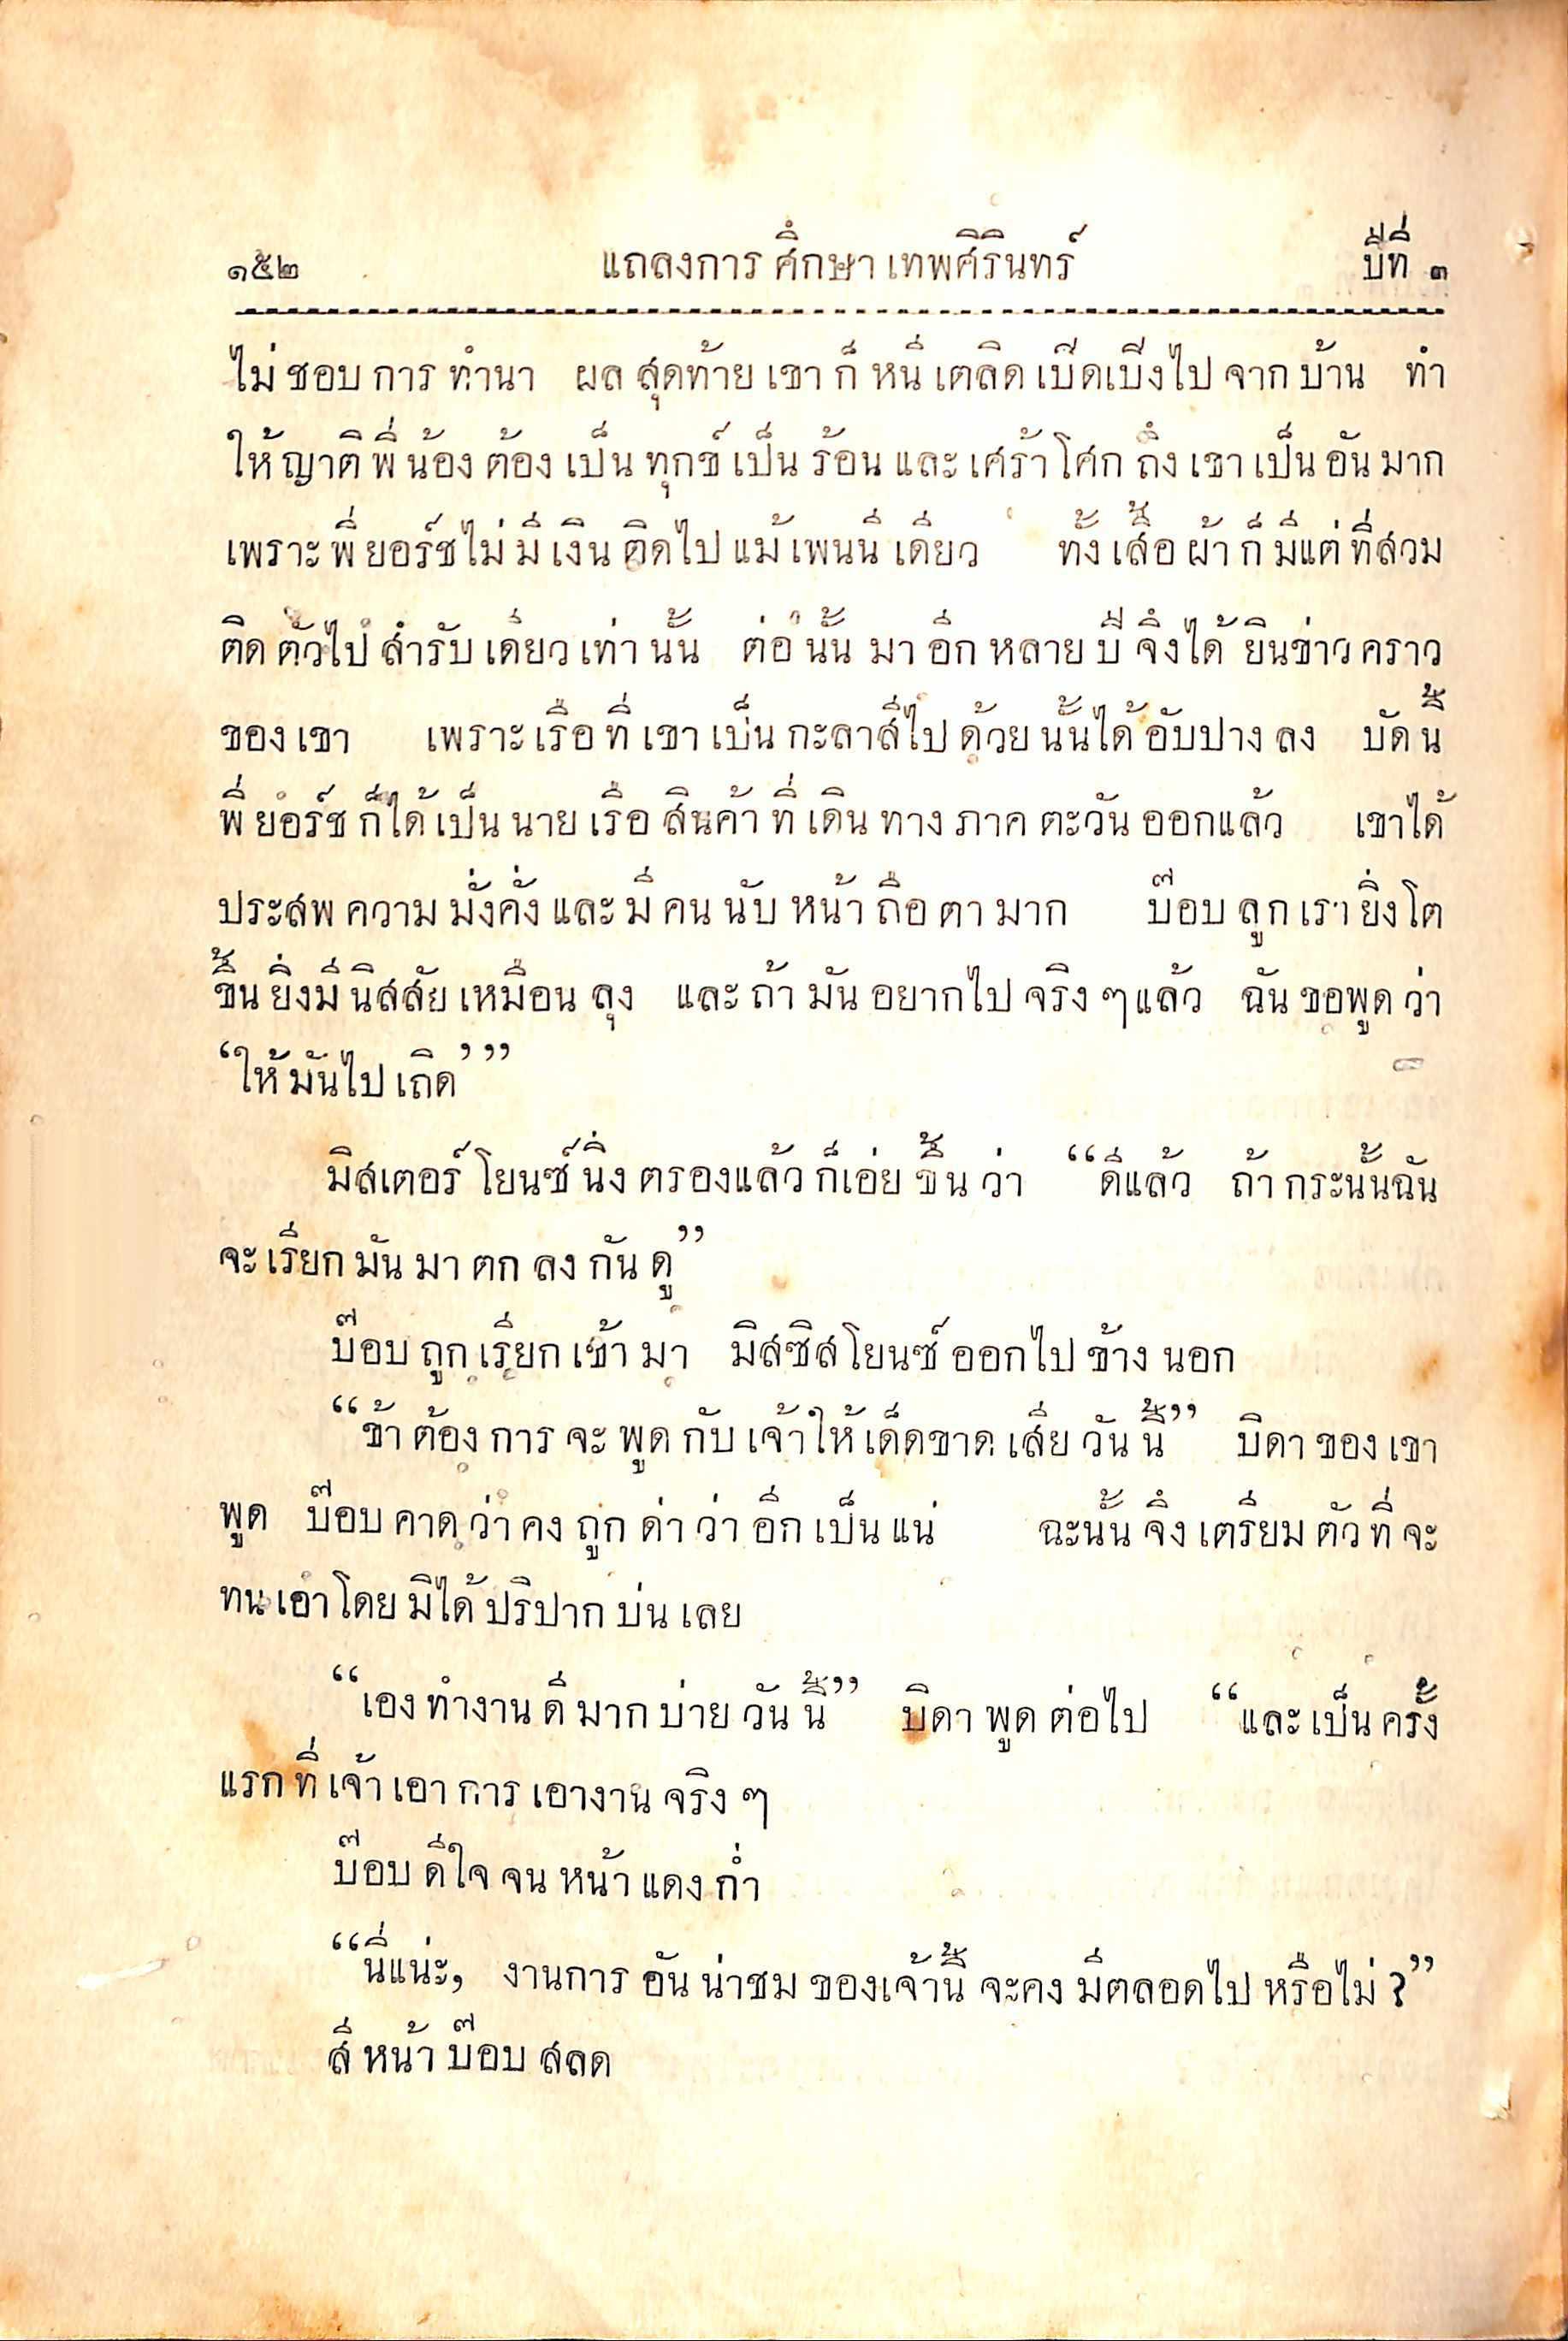 ๑๕๒ แถลงการศึกษาเทพศิรินทร์ ปีที่ ๓
ไม่ชอบการทำนา ผลสุดท้ายเขาก็หนีเตลิดเปิดเปิงไปจากบ้าน ทำ
ให้ญาติพี่น้องต้องเป็นทุกข์เป็นร้อนและเศร้าโศกถึงเขาเป็นอันมาก
เพราะพี่ยอร์ชไม่มีเงินติดไปแม้เพนนีเดียว ทั้งเสื้อผ้าก็มีแต่ที่สวม
ติดตัวไปสำรับเดียวเท่านั้น ต่อนั้นมาอีกหลายปีจึงได้ยินข่าวคราว
ของเขา เพราะเรือที่เขาเป็นกะลาสีไปด้วยนั้นได้อับปางลง บัดนี้
พี่ยอร์ชก็ได้เป็นนายเรือสินค้าที่เดินทางภาคตะวันออกแล้ว เขาได้
ประสพความมั่งคั่งและมีคนนับหน้าถือตามาก บ๊อบลูกเรายิ่งโต
ขึ้นยิ่งมีนิสสัยเหมือนลุง และถ้ามันอยากไปจริงๆแล้ว ฉันขอพูดว่า
‘ให้มันไปเถิด’”
มิสเตอร์โยนซ์นิ่งตรองแล้วก็เอ่ยขึ้นว่า “ดีแล้ว ถ้ากระนั้นฉัน
จะเรียกมันมาตกลงกันดู”
บ๊อบถูกเรียกเข้ามา มิสซิสโยนซ์ออกไปข้างนอก
“ข้าต้องการจะพูดกับเจ้าให้เด็ดขาดเสียวันนี้” บิดาของเขา
พูด บ๊อบคาดว่าคงถูกด่าว่าอีกเป็นแน่ ฉะนั้นจึงเตรียมตัวที่จะ
ทนเอาโดยมิได้ปริปากบ่นเลย
“เองทำงานดีมากบ่ายวันนี้” บิดาพูดต่อไป “และเป็นครั้ง
แรกที่เจ้าเอาการเอางานจริงๆ
บ๊อบดีใจจนหน้าแดงก่ำ
“นี่แน่ะ, งานการอันน่าชมของเจ้านี้จะคงมีตลอดไปหรือไม่?”
สีหน้าบ๊อบสลด